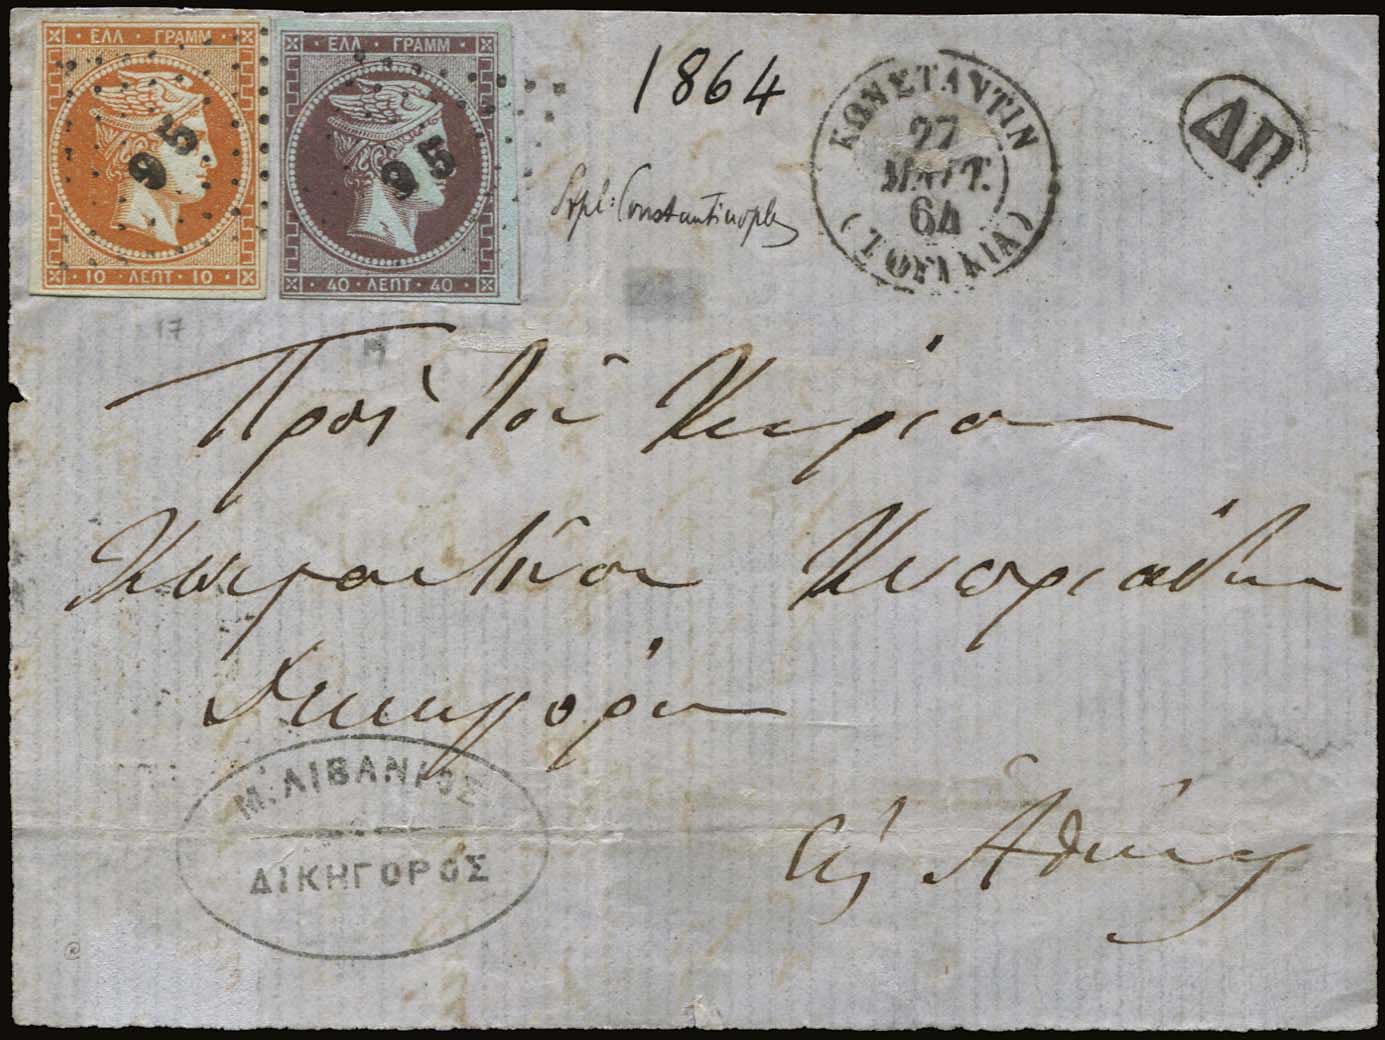 ΕΛΛ · ΓΡΑΜΜ
95
10 · ΛΕΠΤ · 10
ΕΛΛ · ΓΡΑΜΜ
95
40 · ΛΕΠΤ · 40
1864
Constantinople
ΚΩΝΣΤΑΝΤΙΝ
27
ΜΑΡΤ.
64
(ΤΟΥΡΚΙΑ)
ΔΠ
17
Πρὸς τὸν Κύριον
Κυπριάδην
Δικηγόρον
εἰς Ἀθήνας
Μ. ΛΙΒΑΝΙΟΣ
ΔΙΚΗΓΟΡΟΣ